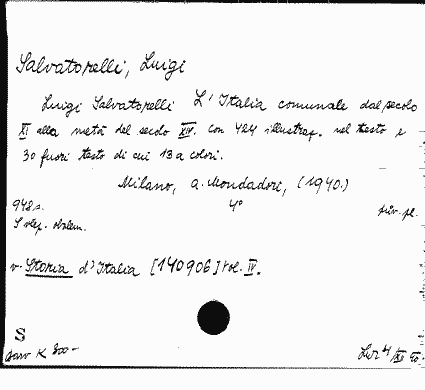 Salvatorelli, Luigi
Luigi Salvatorelli L'Italia comunale dal secolo
XI alla metà del secolo XIV. con 424 illustraz. nel testo e
30 fuori testo di cui 13 a colori.
Milano, A. Mondadori, (1940.)
948 s. 4°
v. Storia d'Italia [140906] vol. IV.
S
K 800-